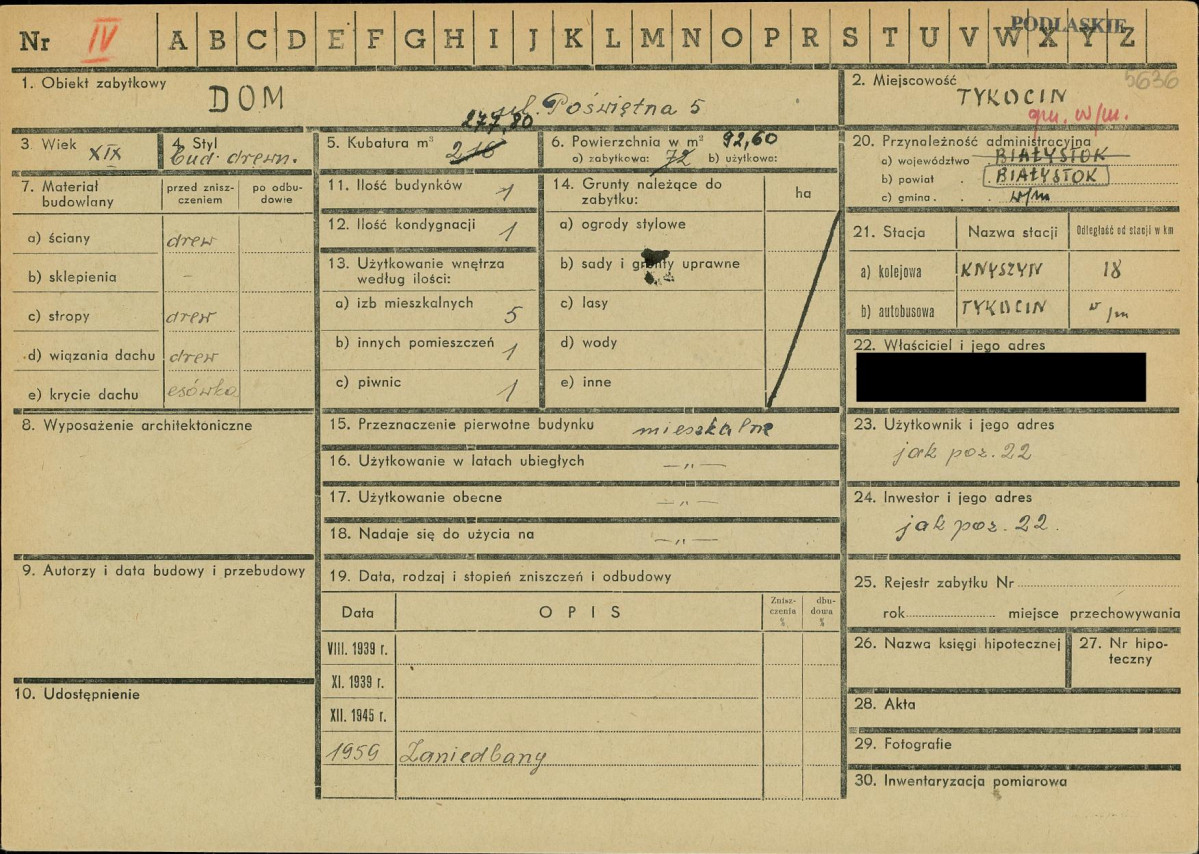 Nr IV A B C D E F G H I J K L M N O P R S T U V W X Y Z
PODLASKIE
5636
1. Obiekt zabytkowy
DOM
ul. Poświętna 5
2. Miejscowość
TYKOCIN
gm. w/m.
3. Wiek XIX
4. Styl
bud. drewn.
5. Kubatura m³
277,80
6. Powierzchnia w m²
92,60
a) zabytkowa: 72 b) użytkowa:
7. Materiał budowlany
przed zniszczeniem
po odbudowie
a) ściany drew
b) sklepienia -
c) stropy drew
d) wiązania dachu drew
e) krycie dachu esówka
8. Wyposażenie architektoniczne
9. Autorzy i data budowy i przebudowy
10. Udostępnienie
11. Ilość budynków 1
12. Ilość kondygnacji 1
13. Użytkowanie wnętrza
według ilości:
a) izb mieszkalnych 5
b) innych pomieszczeń 1
c) piwnic 1
14. Grunty należące do
zabytku:
ha
a) ogrody stylowe
b) sady i grunty uprawne
c) lasy
d) wody
e) inne
15. Przeznaczenie pierwotne budynku mieszkalne
16. Użytkowanie w latach ubiegłych —„—
17. Użytkowanie obecne —„—
18. Nadaje się do użycia na —„—
19. Data, rodzaj i stopień zniszczeń i odbudowy
Data
OPIS
Zniszczenia %
dbudowa %
VIII. 1939 r.
XI. 1939 r.
XII. 1945 r.
1959 Zaniedbany
20. Przynależność administracyjna
a) województwo BIAŁYSTOK
b) powiat BIAŁYSTOK
c) gmina w/m
21. Stacja
Nazwa stacji
Odległość od stacji w km
a) kolejowa KNYSZYN 18
b) autobusowa TYKOCIN w/m
22. Właściciel i jego adres
23. Użytkownik i jego adres
jak poz. 22
24. Inwestor i jego adres
jak poz. 22.
25. Rejestr zabytku Nr
rok miejsce przechowywania
26. Nazwa księgi hipotecznej
27. Nr hipoteczny
28. Akta
29. Fotografie
30. Inwentaryzacja pomiarowa